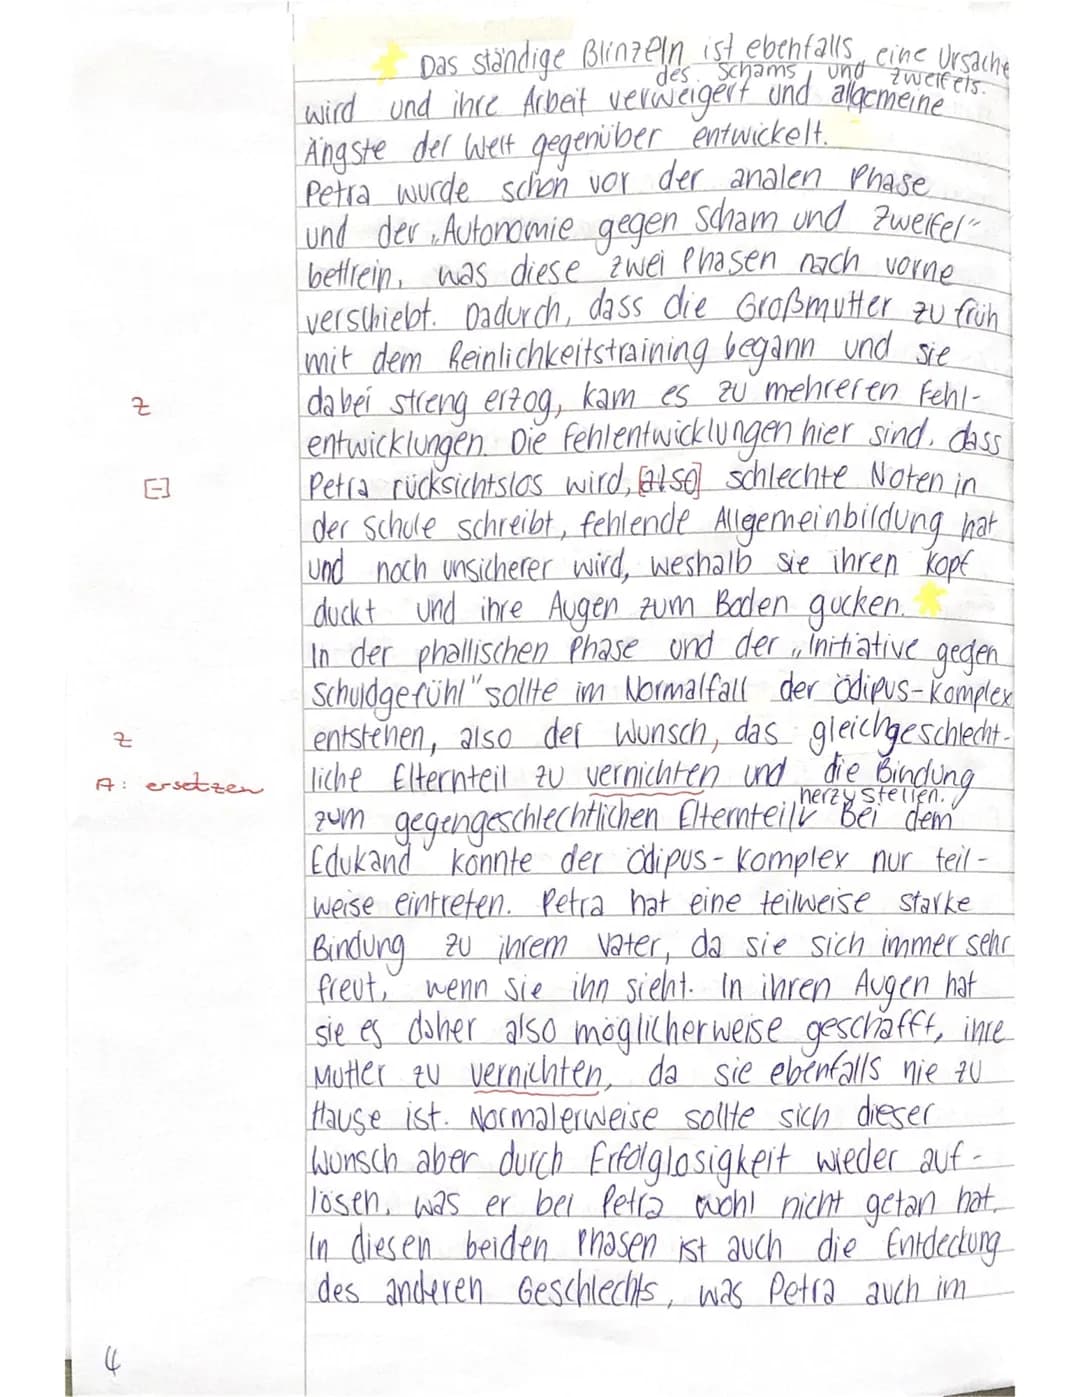 Das ständige Blinzeln ist ebenfalls eine Ursache
des Schams und Zweifels.
wird und ihre Arbeit verweigert und allgemeine
Ängste der Welt gegenüber entwickelt.
Petra wurde schon vor der analen Phase
und der „Autonomie gegen Scham und Zweifel"
bettrein, was diese zwei Phasen nach vorne
verschiebt. Dadurch, dass die Großmutter zu früh
mit dem Reinlichkeitstraining begann und sie
Z
dabei streng erzog, kam es zu mehreren Fehl-
entwicklungen. Die Fehlentwicklungen hier sind, dass
[-]
Petra rücksichtslos wird, [also] schlechte Noten in
der Schule schreibt, fehlende Allgemeinbildung hat
und noch unsicherer wird, weshalb sie ihren Kopf
duckt und ihre Augen zum Boden gucken.
In der phallischen Phase und der „Initiative gegen
Schuldgefühl" sollte im Normalfall der Ödipus-Komplex
Z
entstehen, also der Wunsch, das gleichgeschlecht-
A: ersetzen
liche Elternteil zu vernichten und die Bindung
herzustellen.
zum gegengeschlechtlichen Elternteil Bei dem
Edukand konnte der Ödipus-Komplex nur teil-
weise eintreten. Petra hat eine teilweise starke
Bindung zu ihrem Vater, da sie sich immer sehr
freut, wenn sie ihn sieht. In ihren Augen hat
sie es daher also möglicherweise geschafft, ihre
Mutter zu vernichten, da sie ebenfalls nie zu
Hause ist. Normalerweise sollte sich dieser
Wunsch aber durch Erfolglosigkeit wieder auf-
lösen, was er bei Petra wohl nicht getan hat.
In diesen beiden Phasen ist auch die Entdeckung
des anderen Geschlechts, was Petra auch im
4